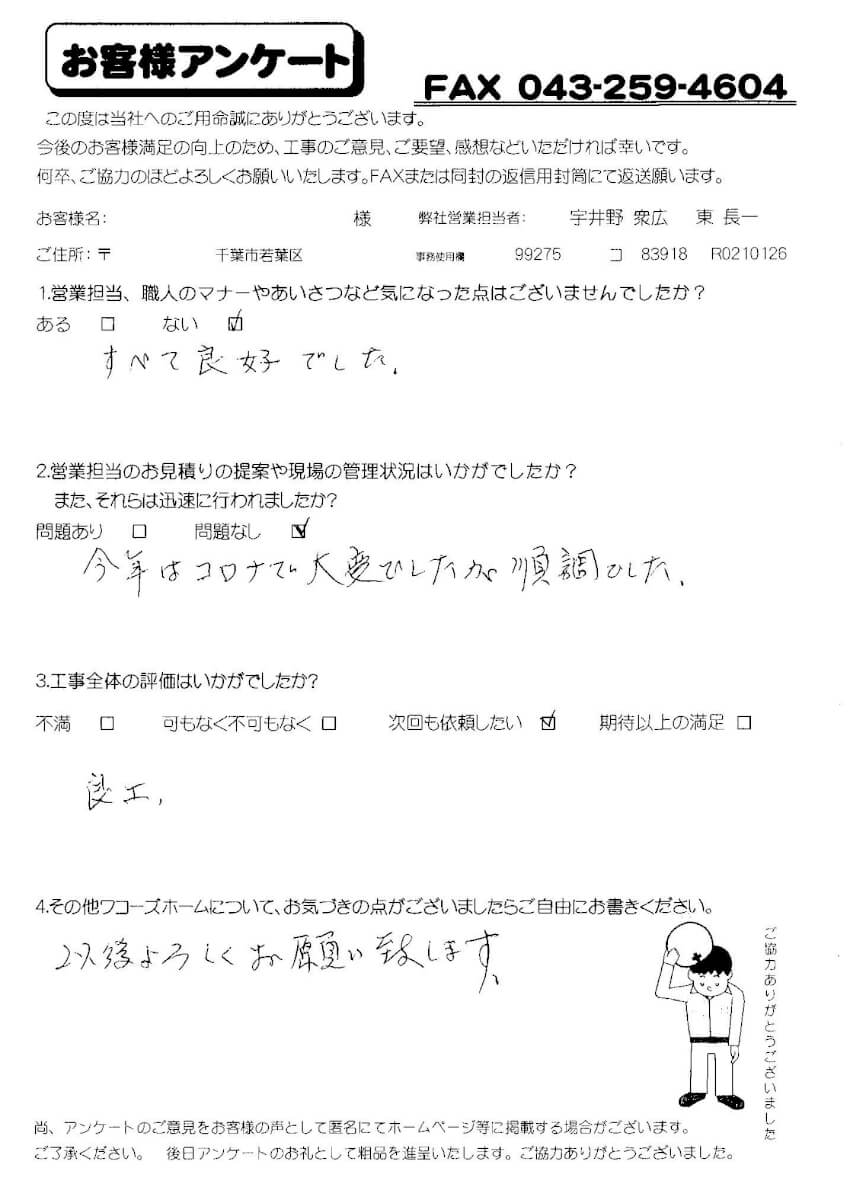 お客様アンケート
FAX 043-259-4604
この度は当社へのご用命誠にありがとうございます。
今後のお客様満足の向上のため、工事のご意見、ご要望、感想などいただければ幸いです。
何卒、ご協力のほどよろしくお願いいたします。FAXまたは同封の返信用封筒にて返送願います。
お客様名： 様 弊社営業担当者： 宇井野 衆広 東 長一
ご住所：〒 千葉市若葉区 事務使用欄 99275 コ 83918 R0210126
1.営業担当、職人のマナーやあいさつなど気になった点はございませんでしたか？
ある □ ない ☑
すべて良好でした.
2.営業担当のお見積りの提案や現場の管理状況はいかがでしたか？
また、それらは迅速に行われましたか?
問題あり □ 問題なし ☑
今年はコロナで大変でしたが順調でした.
3.工事全体の評価はいかがでしたか?
不満 □ 可もなく不可もなく □ 次回も依頼したい ☑ 期待以上の満足 □
良工,
4.その他ワコーズホームについて、お気づきの点がございましたらご自由にお書きください。
以後よろしくお願い致します、
ご協力ありがとうございました
尚、アンケートのご意見をお客様の声として匿名にてホームページ等に掲載する場合がございます。
ご了承ください。 後日アンケートのお礼として粗品を進呈いたします。ご協力ありがとうございました。